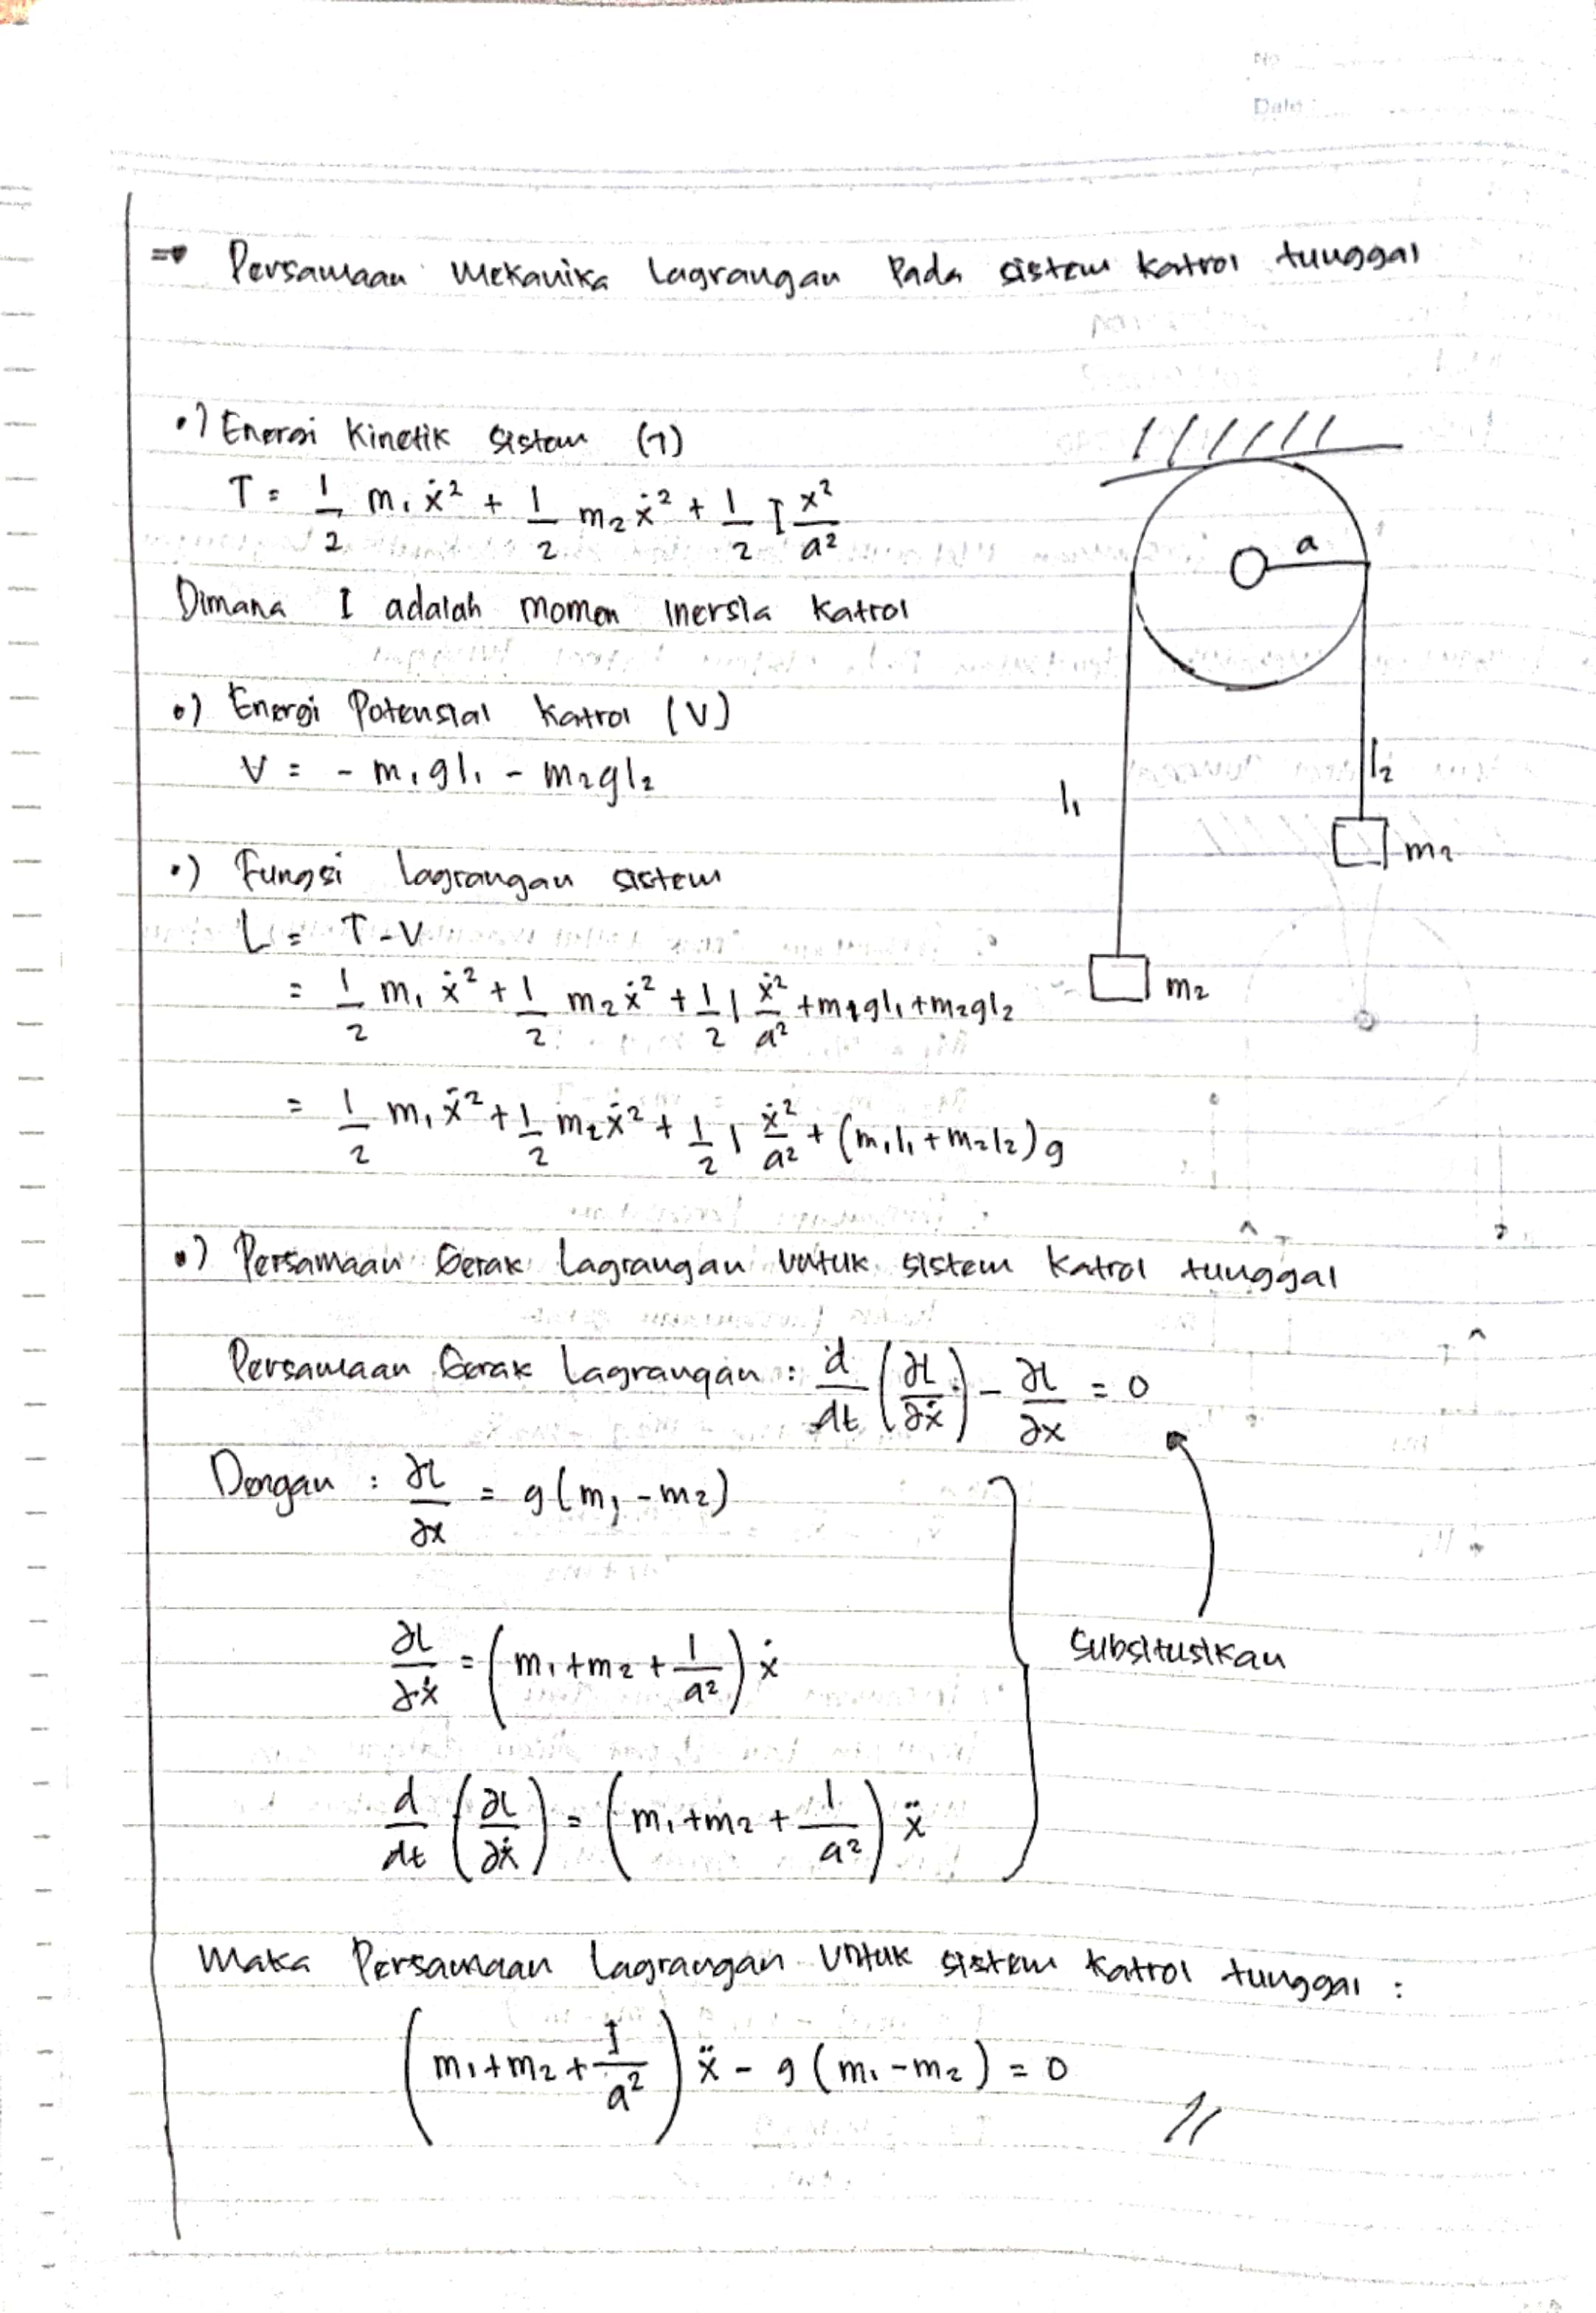 No
Date :
⇒ Persamaan Mekanika Lagrangan Pada sistem katrol tunggal
•) Energi Kinetik Sistem (T)
T = 1/2 m₁ẋ² + 1/2 m₂ẋ² + 1/2 I x²/a²
Dimana I adalah momen inersia katrol
•) Energi Potensial Katrol (V)
V = - m₁gl₁ - m₂gl₂
•) Fungsi Lagrangan sistem
L = T - V
= 1/2 m₁ẋ² + 1/2 m₂ẋ² + 1/2 I ẋ²/a² + m₁gl₁ + m₂gl₂
= 1/2 m₁ẋ² + 1/2 m₂ẋ² + 1/2 I ẋ²/a² + (m₁l₁ + m₂l₂)g
a
l₁
l₂
m₂
m₂
•) Persamaan Gerak Lagrangan untuk sistem katrol tunggal
Persamaan Gerak Lagrangan : d/dt (∂L/∂ẋ) - ∂L/∂x = 0
Dengan : ∂L/∂x = g(m₁ - m₂)
∂L/∂ẋ = (m₁ + m₂ + I/a²) ẋ
Subsitusikan
d/dt (∂L/∂ẋ) = (m₁ + m₂ + I/a²) ẍ
Maka Persamaan Lagrangan untuk sistem katrol tunggal :
(m₁ + m₂ + I/a²) ẍ - g(m₁ - m₂) = 0